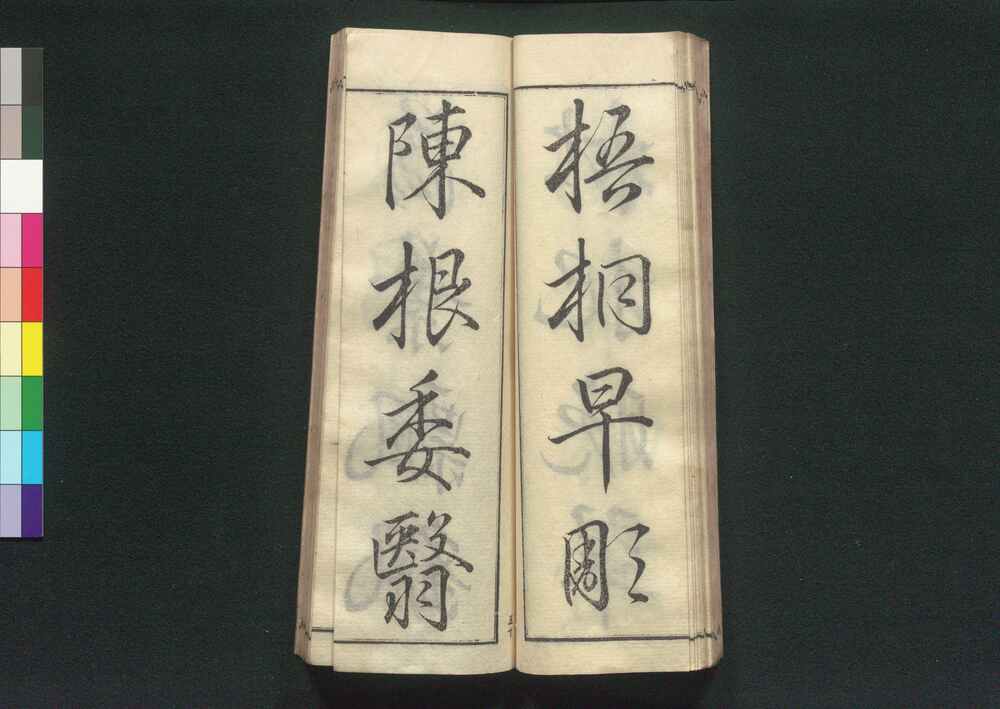 梧桐早彫
陳根委翳
五十